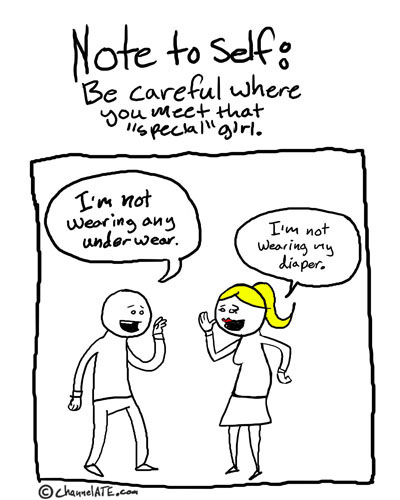 Note to Self:
Be careful where
you meet that
"special" girl.
I'm not
wearing any
underwear.
I'm not
wearing my
diaper.
© channelATE.com